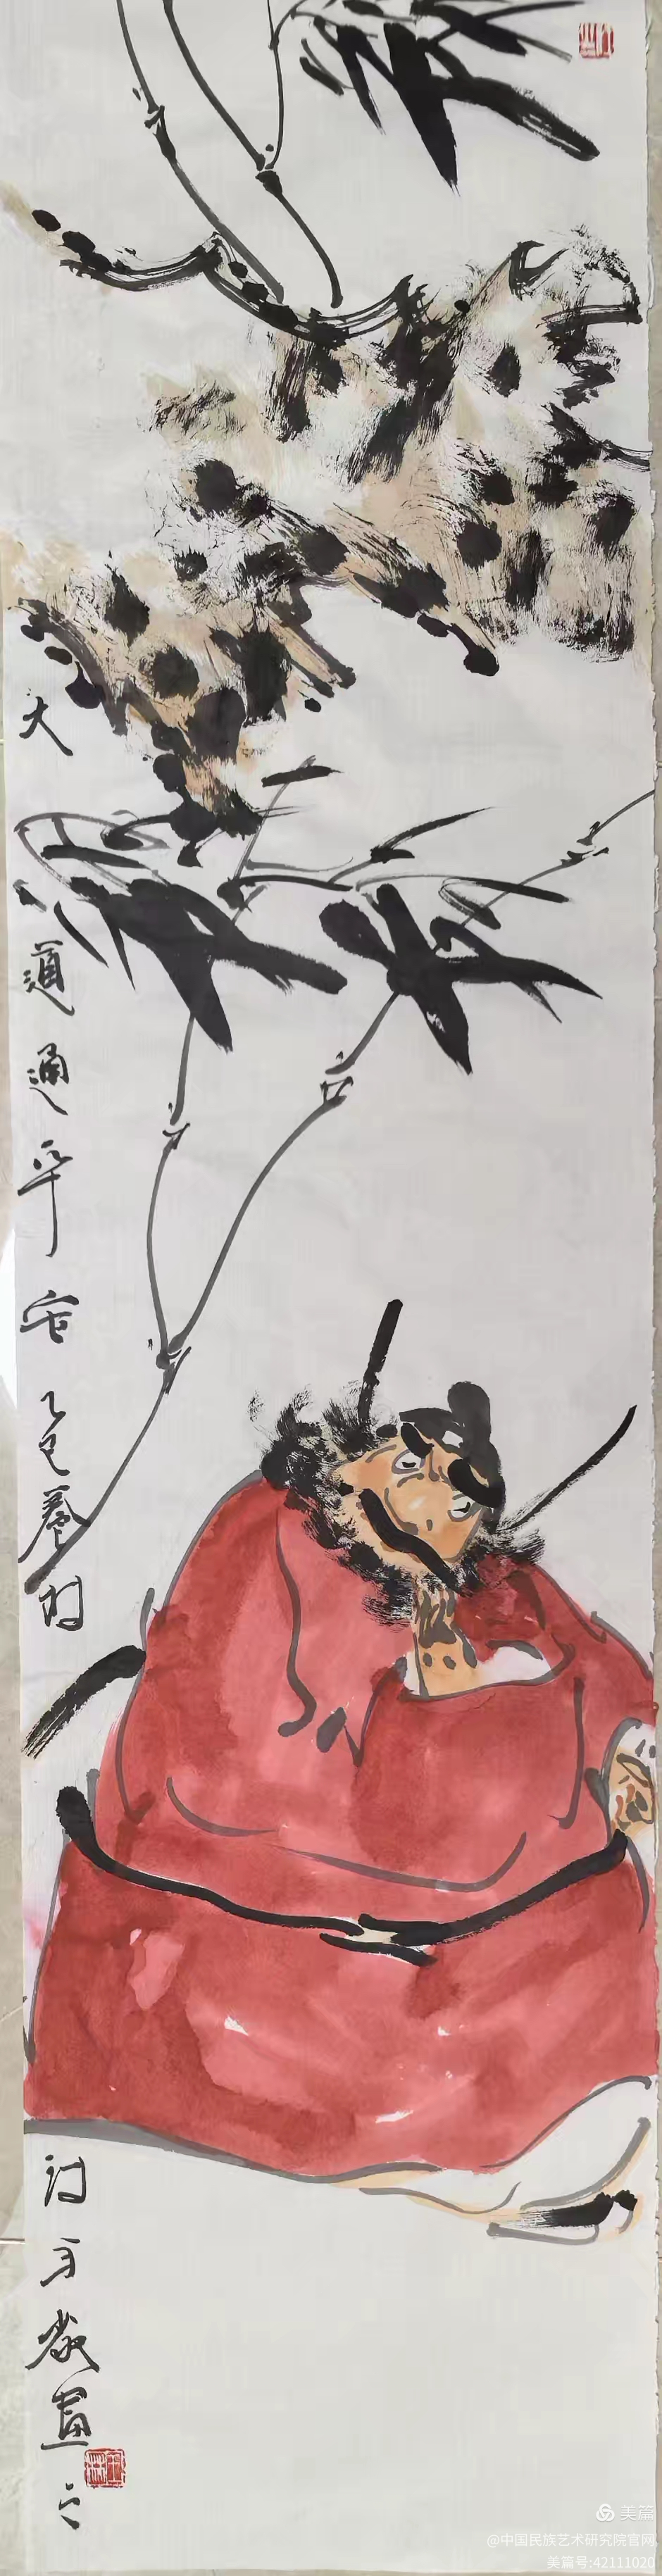 大道通平安乙巳春时
诗方
画之
美篇
@中国民族艺术研究院官网
美篇号:42111020